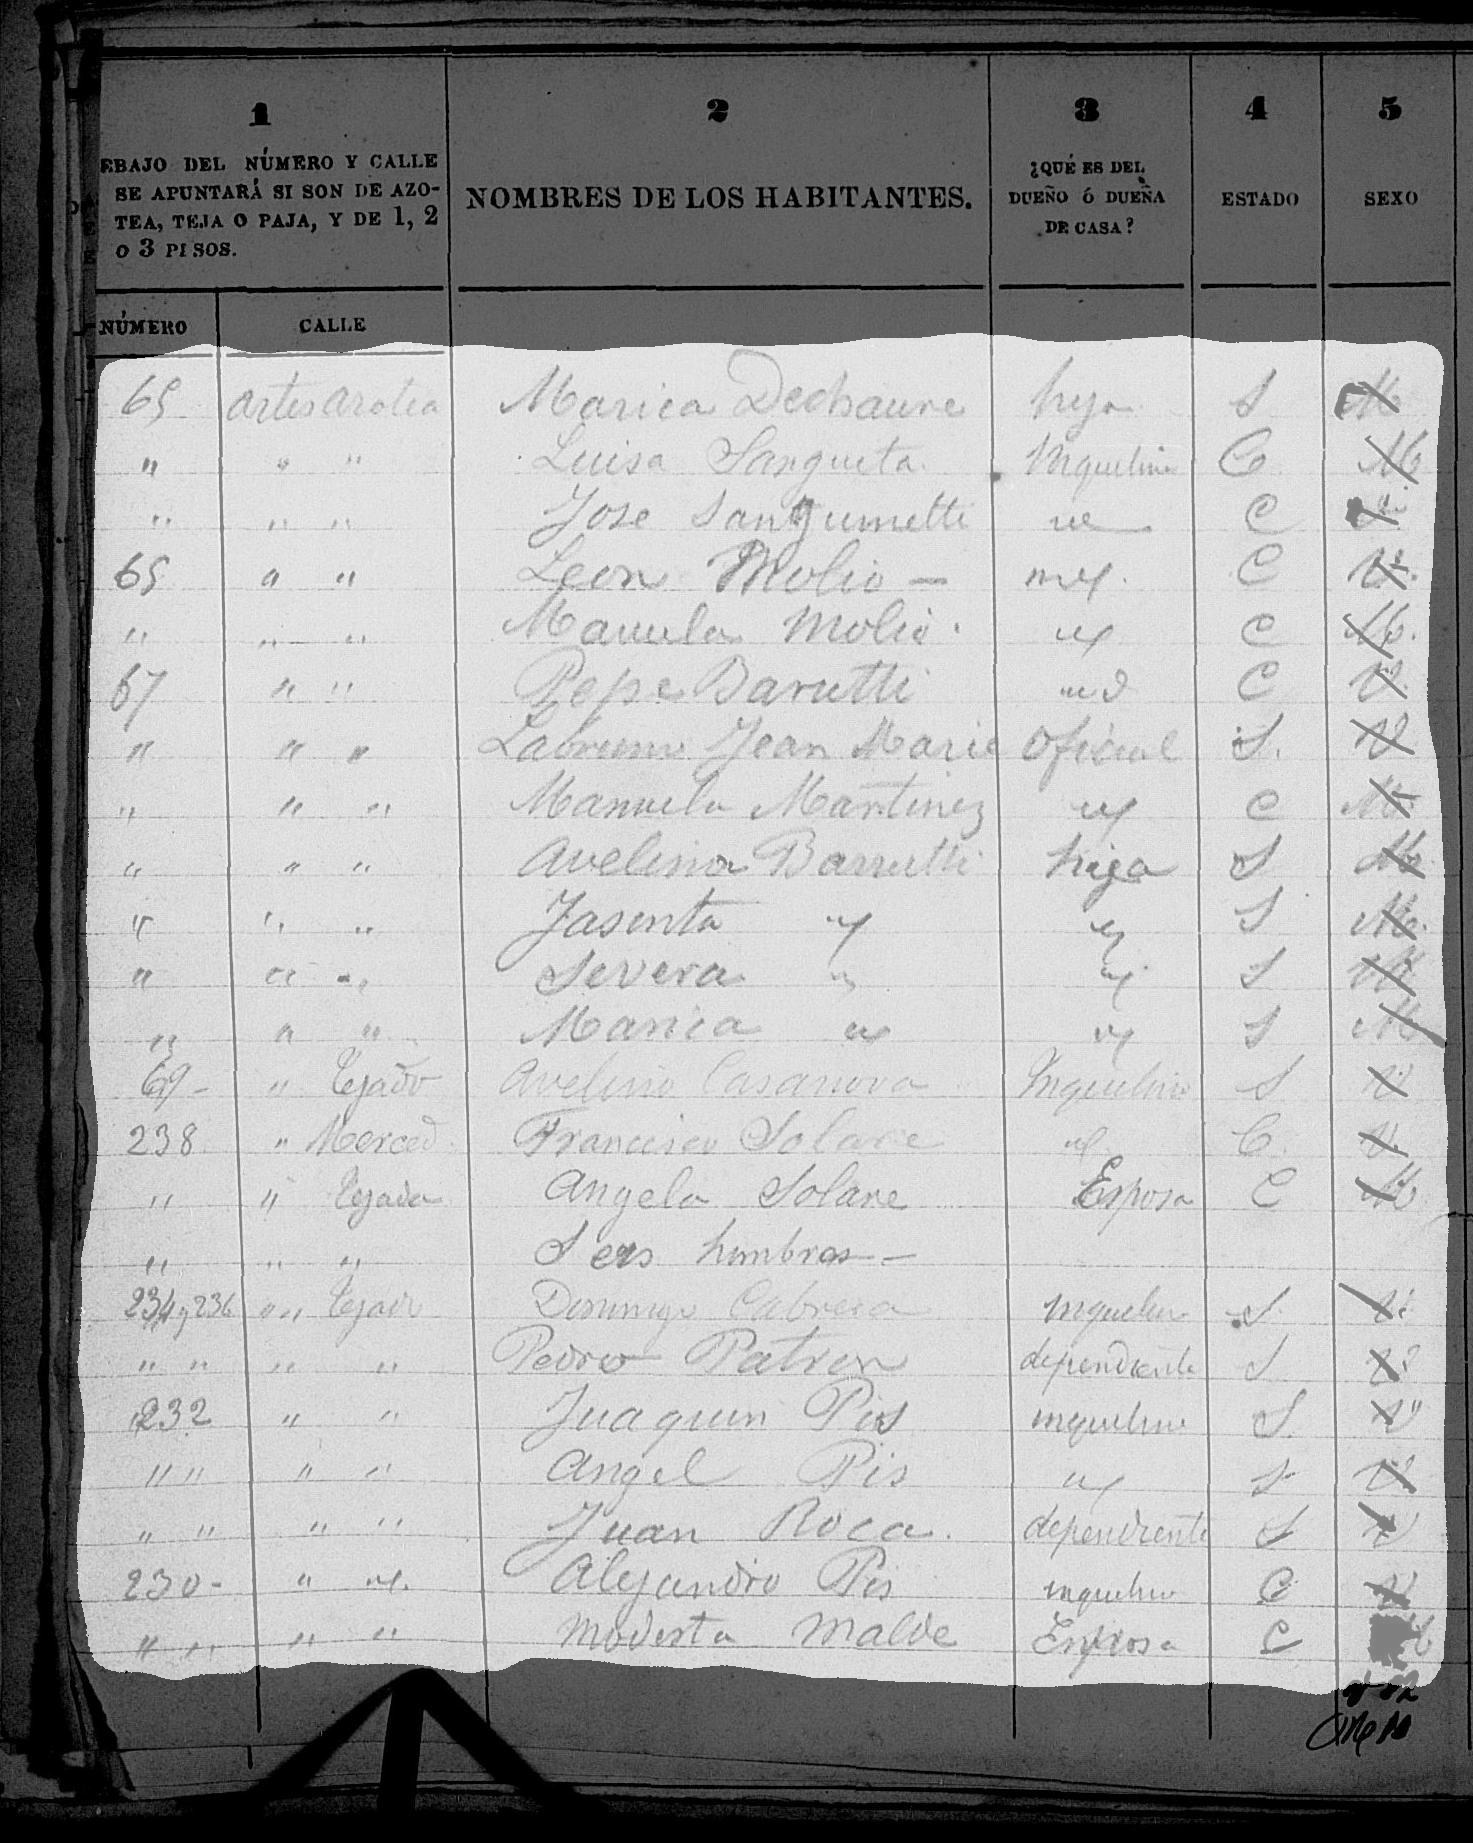 1 2 3 4 5
EBAJO DEL NÚMERO Y CALLE
SE APUNTARÁ SI SON DE AZO-
TEA, TEJA O PAJA, Y DE 1, 2
O 3 PISOS.
NOMBRES DE LOS HABITANTES.
¿QUÉ ES DEL
DUEÑO Ó DUEÑA
DE CASA?
ESTADO
SEXO
NÚMERO CALLE
65 artes azotea Marica Dechaure hija S M
" " " Luisa Sangueta Inquilina C M
" " " Jose Sanguinetti C
65 " " Leon Molio — C V
" " " Manuela Molio C M.
67 " " Pepe Barutti C V
" " " Jean Marie Oficial S. V
" " " Manuela Martinez C M
" " " Avelina Barrutti higa S M
" " " Jasinta S M.
" " " Severa S M
" " " Marica S M
69- " Tejado Avelino Casanova Inquilino S V
238 " Merced Francisco Solare C. V.
" " Tejada Angela Solare Esposa C M
" " " Seis hombres —
234 y 236 " " Tejado Domingo Cabrera inquilino S. V
" " " " Pedro Patron dependiente S V
232 " " Juaquin Pis inquilino S. V
" " " " Angel Pis S V
" " " " Juan Roca. dependiente S V
230- " Alejandro Pis inquilino C V
" " " " Modesta Malde Esposa C